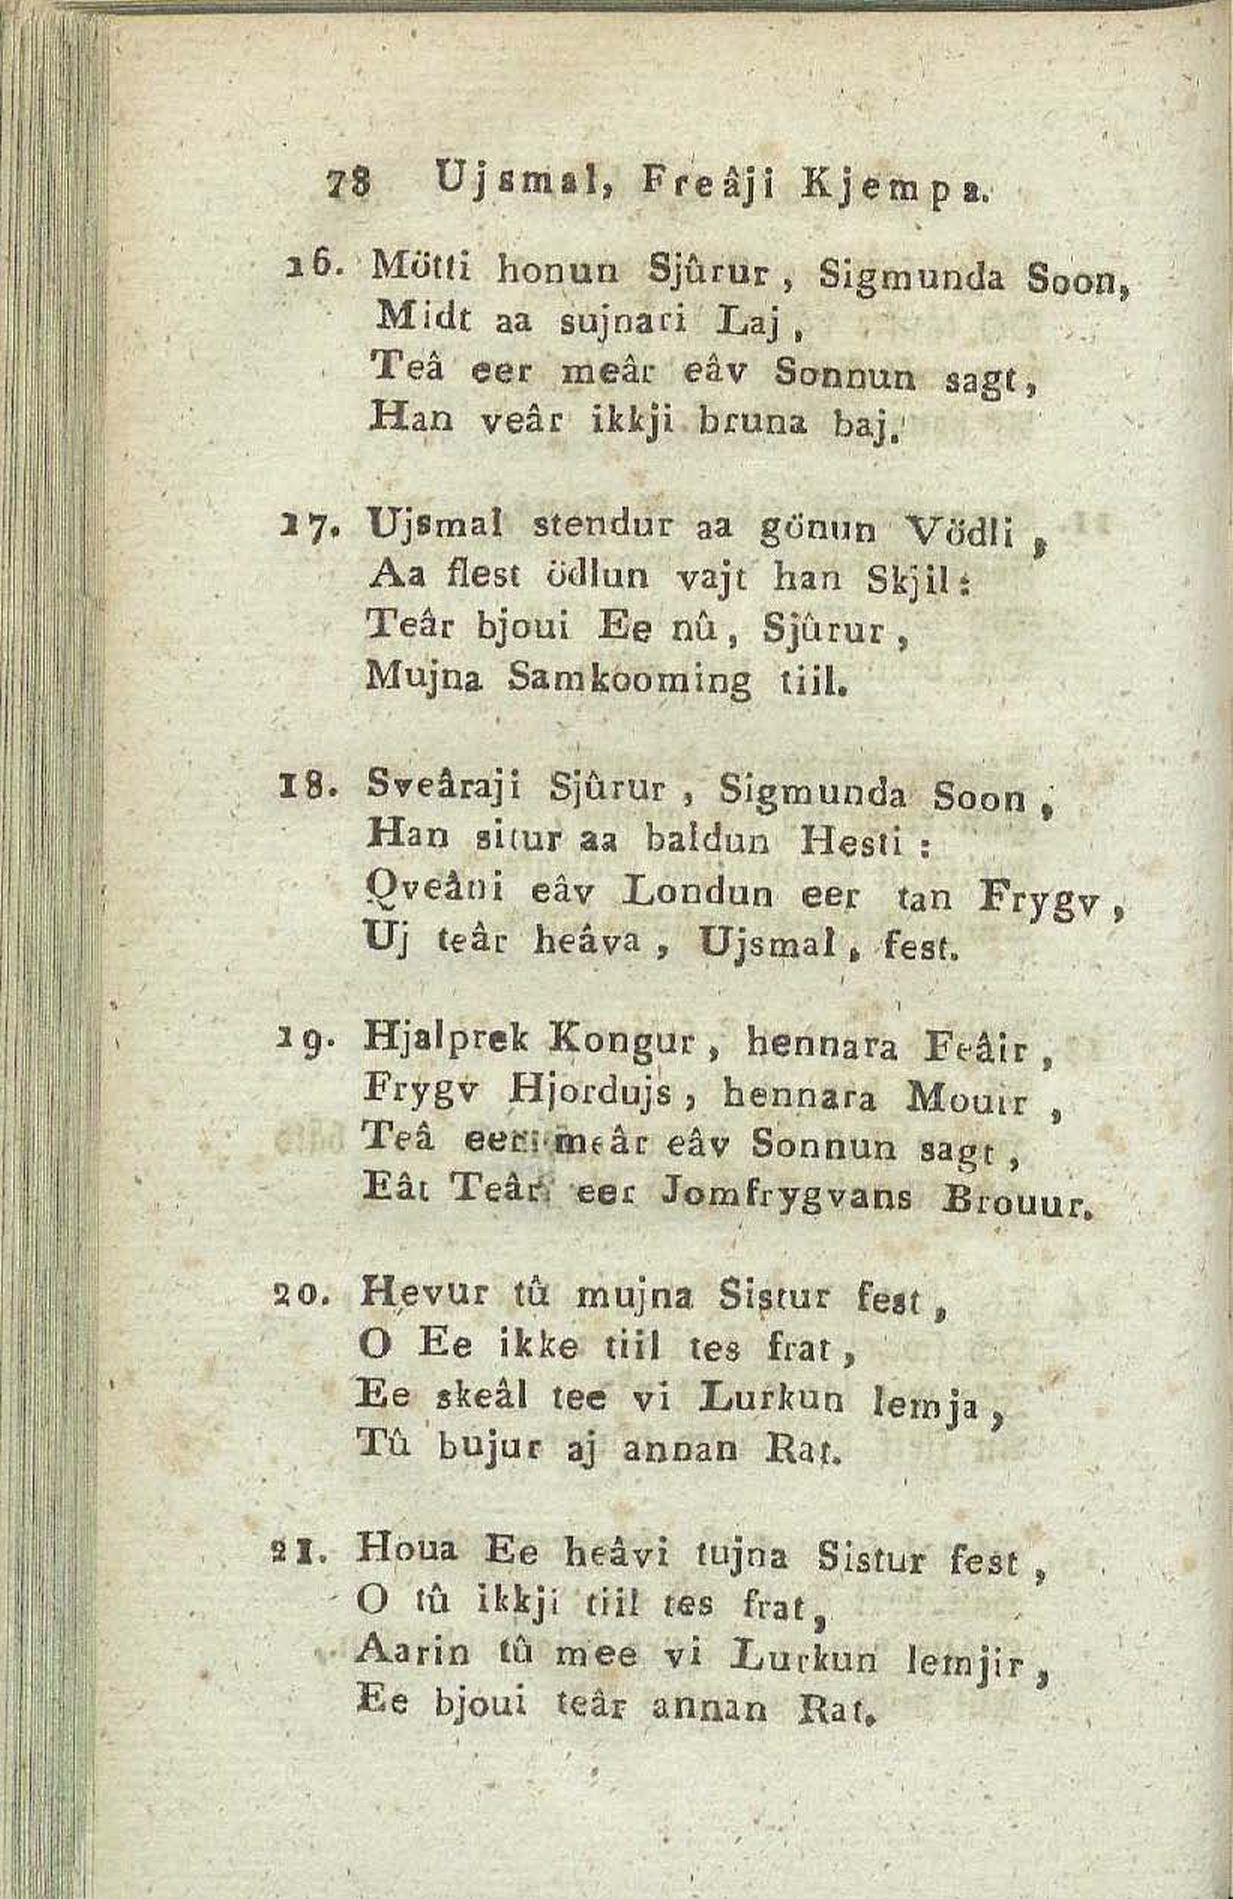 78 Ujsmal, Freâji Kjempa.
16. Mötti honun Sjûrur, Sigmunda Soon,
Midt aa sujnari Laj,
Teâ eer meâr eâv Sonnun sagt,
Han veâr ikkji bruna baj.
17. Ujsmal stendur aa gönun Vödli,
Aa flest ödlun vajt han Skjil:
Teâr bjoui Ee nû, Sjûrur,
Mujna Samkooming tiil.
18. Sveâraji Sjûrur, Sigmunda Soon,
Han situr aa baldun Hesti:
Qveâni eâv Londun eer tan Frygv,
Uj teâr heâva, Ujsmal, fest.
19. Hjalprek Kongur, hennara Feâir,
Frygv Hjordujs, hennara Mouir,
Teâ eer meâr eâv Sonnun sagt,
Eât Teâr eer Jomfrygvans Brouur.
20. Hevur tû mujna Sistur fest,
O Ee ikke tiil tes frat,
Ee skeâl tee vi Lurkun lemja,
Tû bujur aj annan Rat.
21. Houa Ee heâvi tujna Sistur fest,
O tû ikkji tiil tes frat,
Aarin tû mee vi Lurkun lemjir,
Ee bjoui teâr annan Rat.